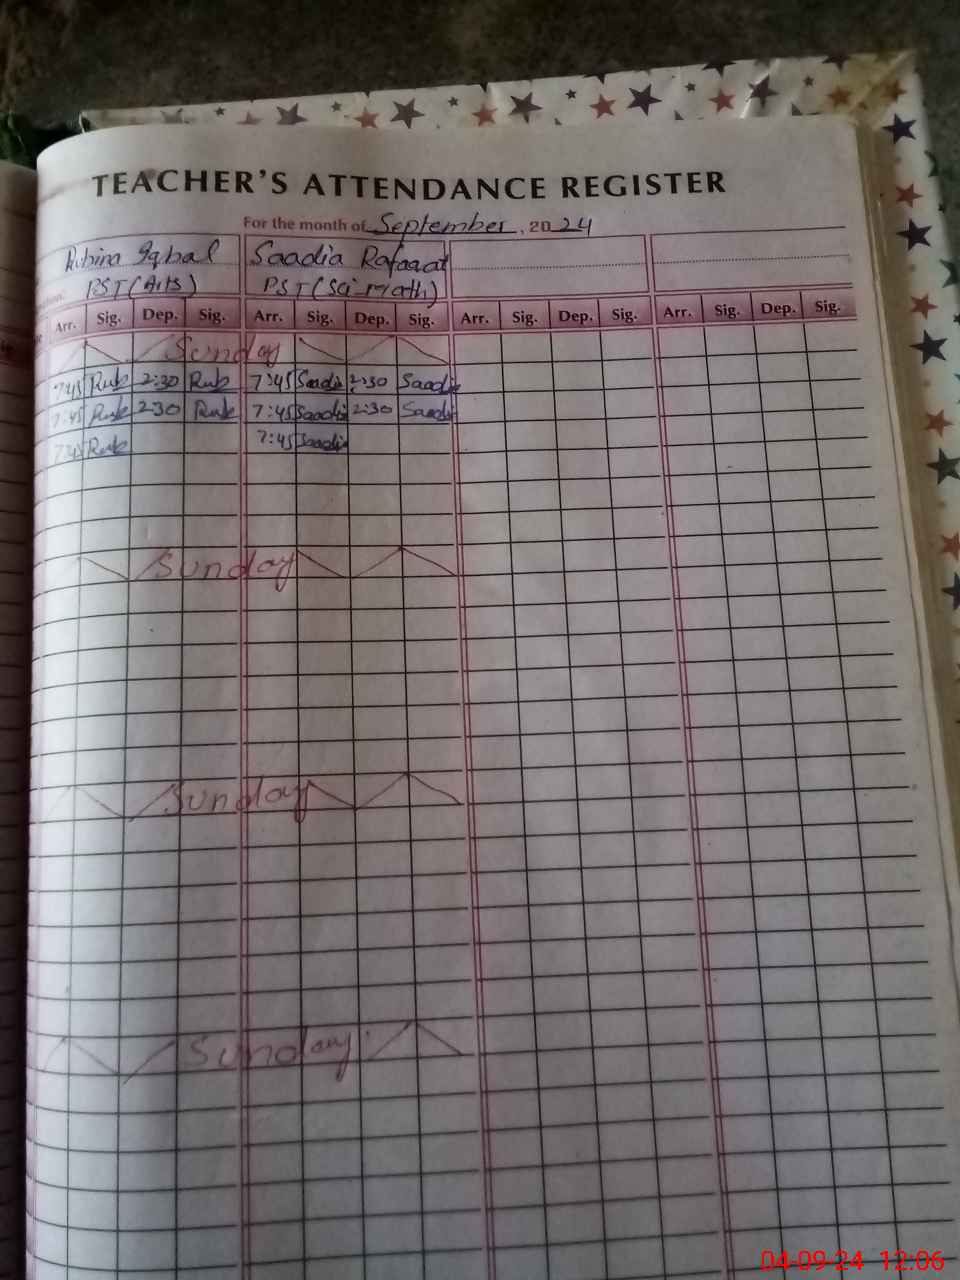 TEACHER'S ATTENDANCE REGISTER
For the month of September, 2024
Rubina Iqbal Saadia Rafaqat
PST (Arts) PST (Sci-Math)
Arr. Sig. Dep. Sig. Arr. Sig. Dep. Sig. Arr. Sig. Dep. Sig. Arr. Sig. Dep. Sig.
Sunday
7:45 Rub 2:30 Rub 7:45 Saadia 2:30 Saadia
7:45 Rub 2:30 Rub 7:45 Saadia 2:30 Saadia
7:45 Rub 7:45 Saadia
Sunday
Sunday
Sunday
04-09-24 12:06